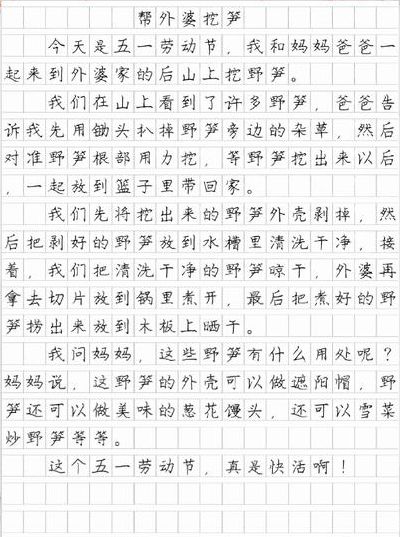 帮外婆挖笋
今天是五一劳动节，我和妈妈爸爸一
起来到外婆家的后山上挖野笋。
我们在山上看到了许多野笋，爸爸告
诉我先用锄头扒掉野笋旁边的杂草，然后
对准野笋根部用力挖，等野笋挖出来以后
，一起放到篮子里带回家。
我们先将挖出来的野笋外壳剥掉，然
后把剥好的野笋放到水槽里清洗干净，接
着，我们把清洗干净的野笋晾干，外婆再
拿去切片放到锅里煮开，最后把煮好的野
笋捞出来放到木板上晒干。
我问妈妈，这些野笋有什么用处呢？
妈妈说，这野笋的外壳可以做遮阳帽，野
笋还可以做美味的葱花馒头，还可以雪菜
炒野笋等等。
这个五一劳动节，真是快活啊！